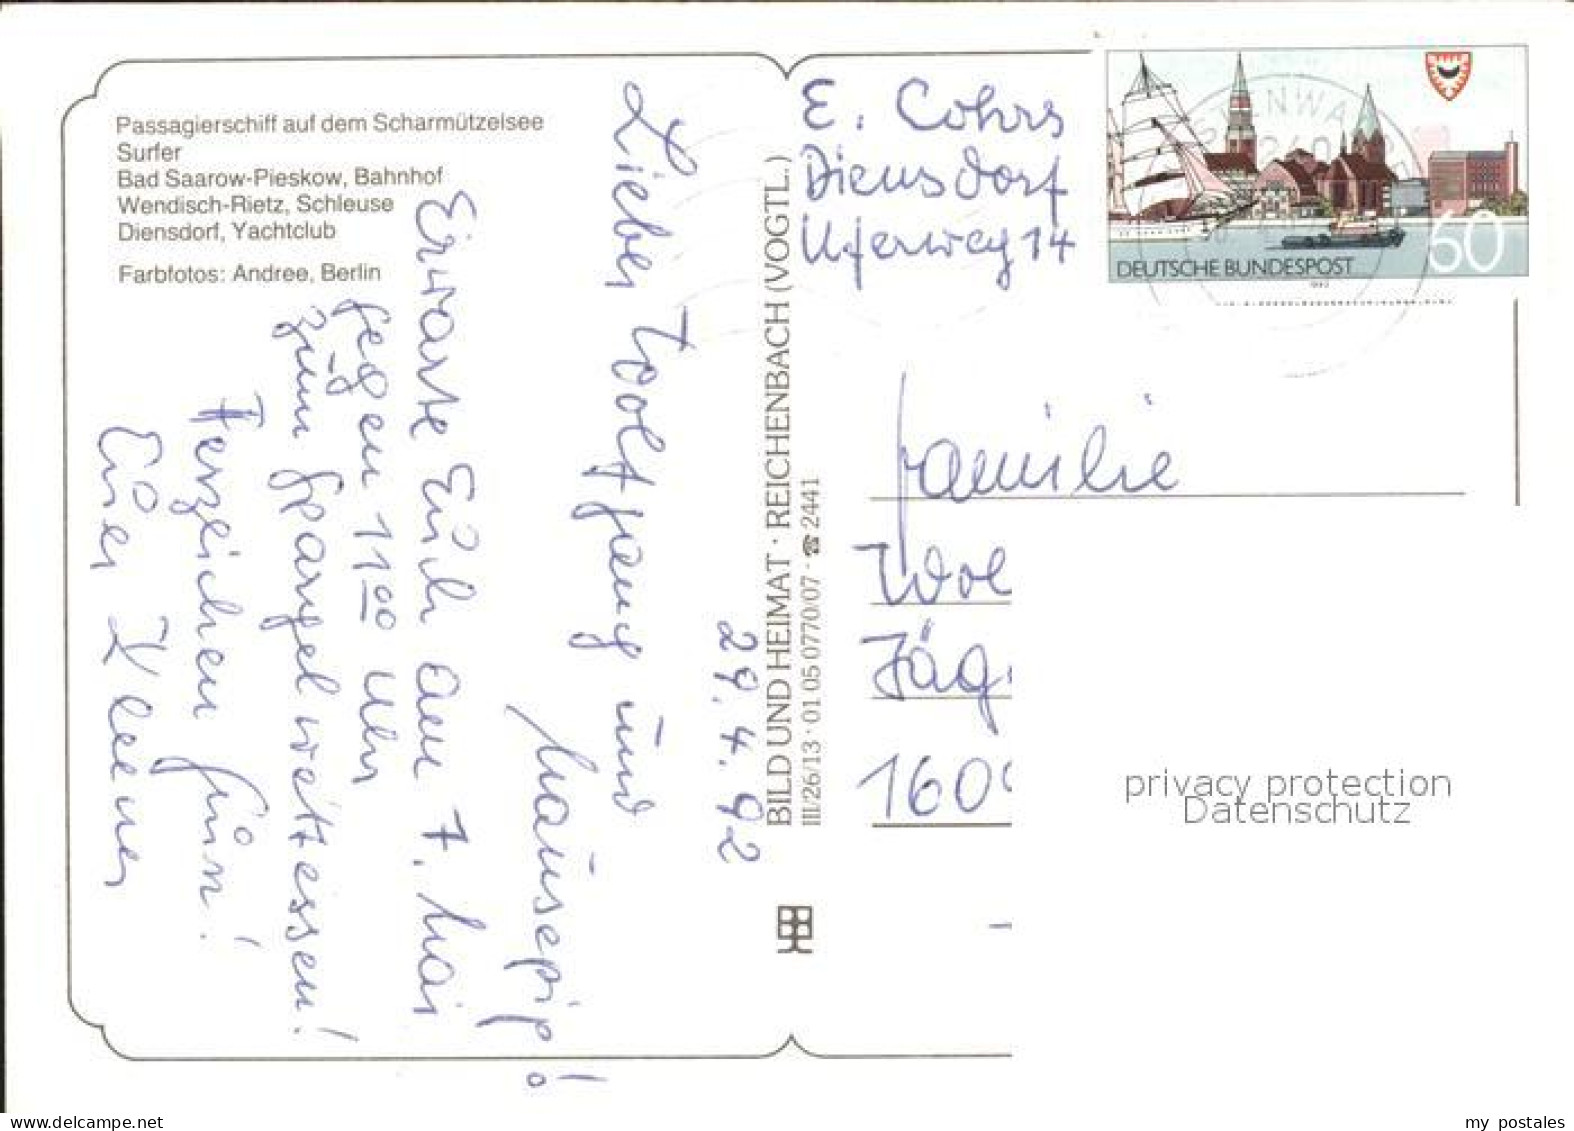 Passagierschiff auf dem Scharmützelsee
Surfer
Bad Saarow-Pieskow, Bahnhof
Wendisch-Rietz, Schleuse
Diensdorf, Yachtclub
Farbfotos: Andree, Berlin
29.4.92
Lieber Wolfgang und
Mausepip!
Erwarte Euch am 7. Mai
gegen 11 00 Uhr
zum Spargelwettessen!
Verzeichen für!
Euer
BILD UND HEIMAT · REICHENBACH (VOGTL.)
III/26/13 · 01 05 0770/07 · ☎ 2441
E. Cohrs
Diensdorf
Uferweg 14
DEUTSCHE BUNDESPOST
60
Familie
Wol
Jäg
160
privacy protection
Datenschutz
www.delcampe.net
my postales